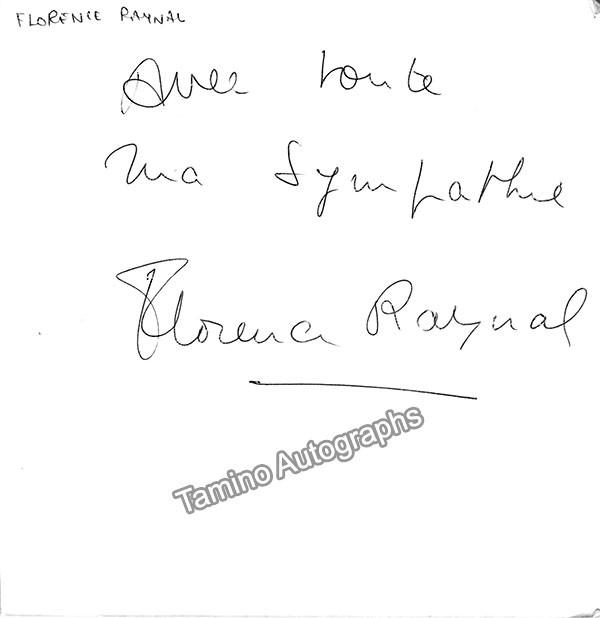 FLORENCE RAYNAL
Avec toute
ma Sympathie
Florence Raynal
Tamino Autographs